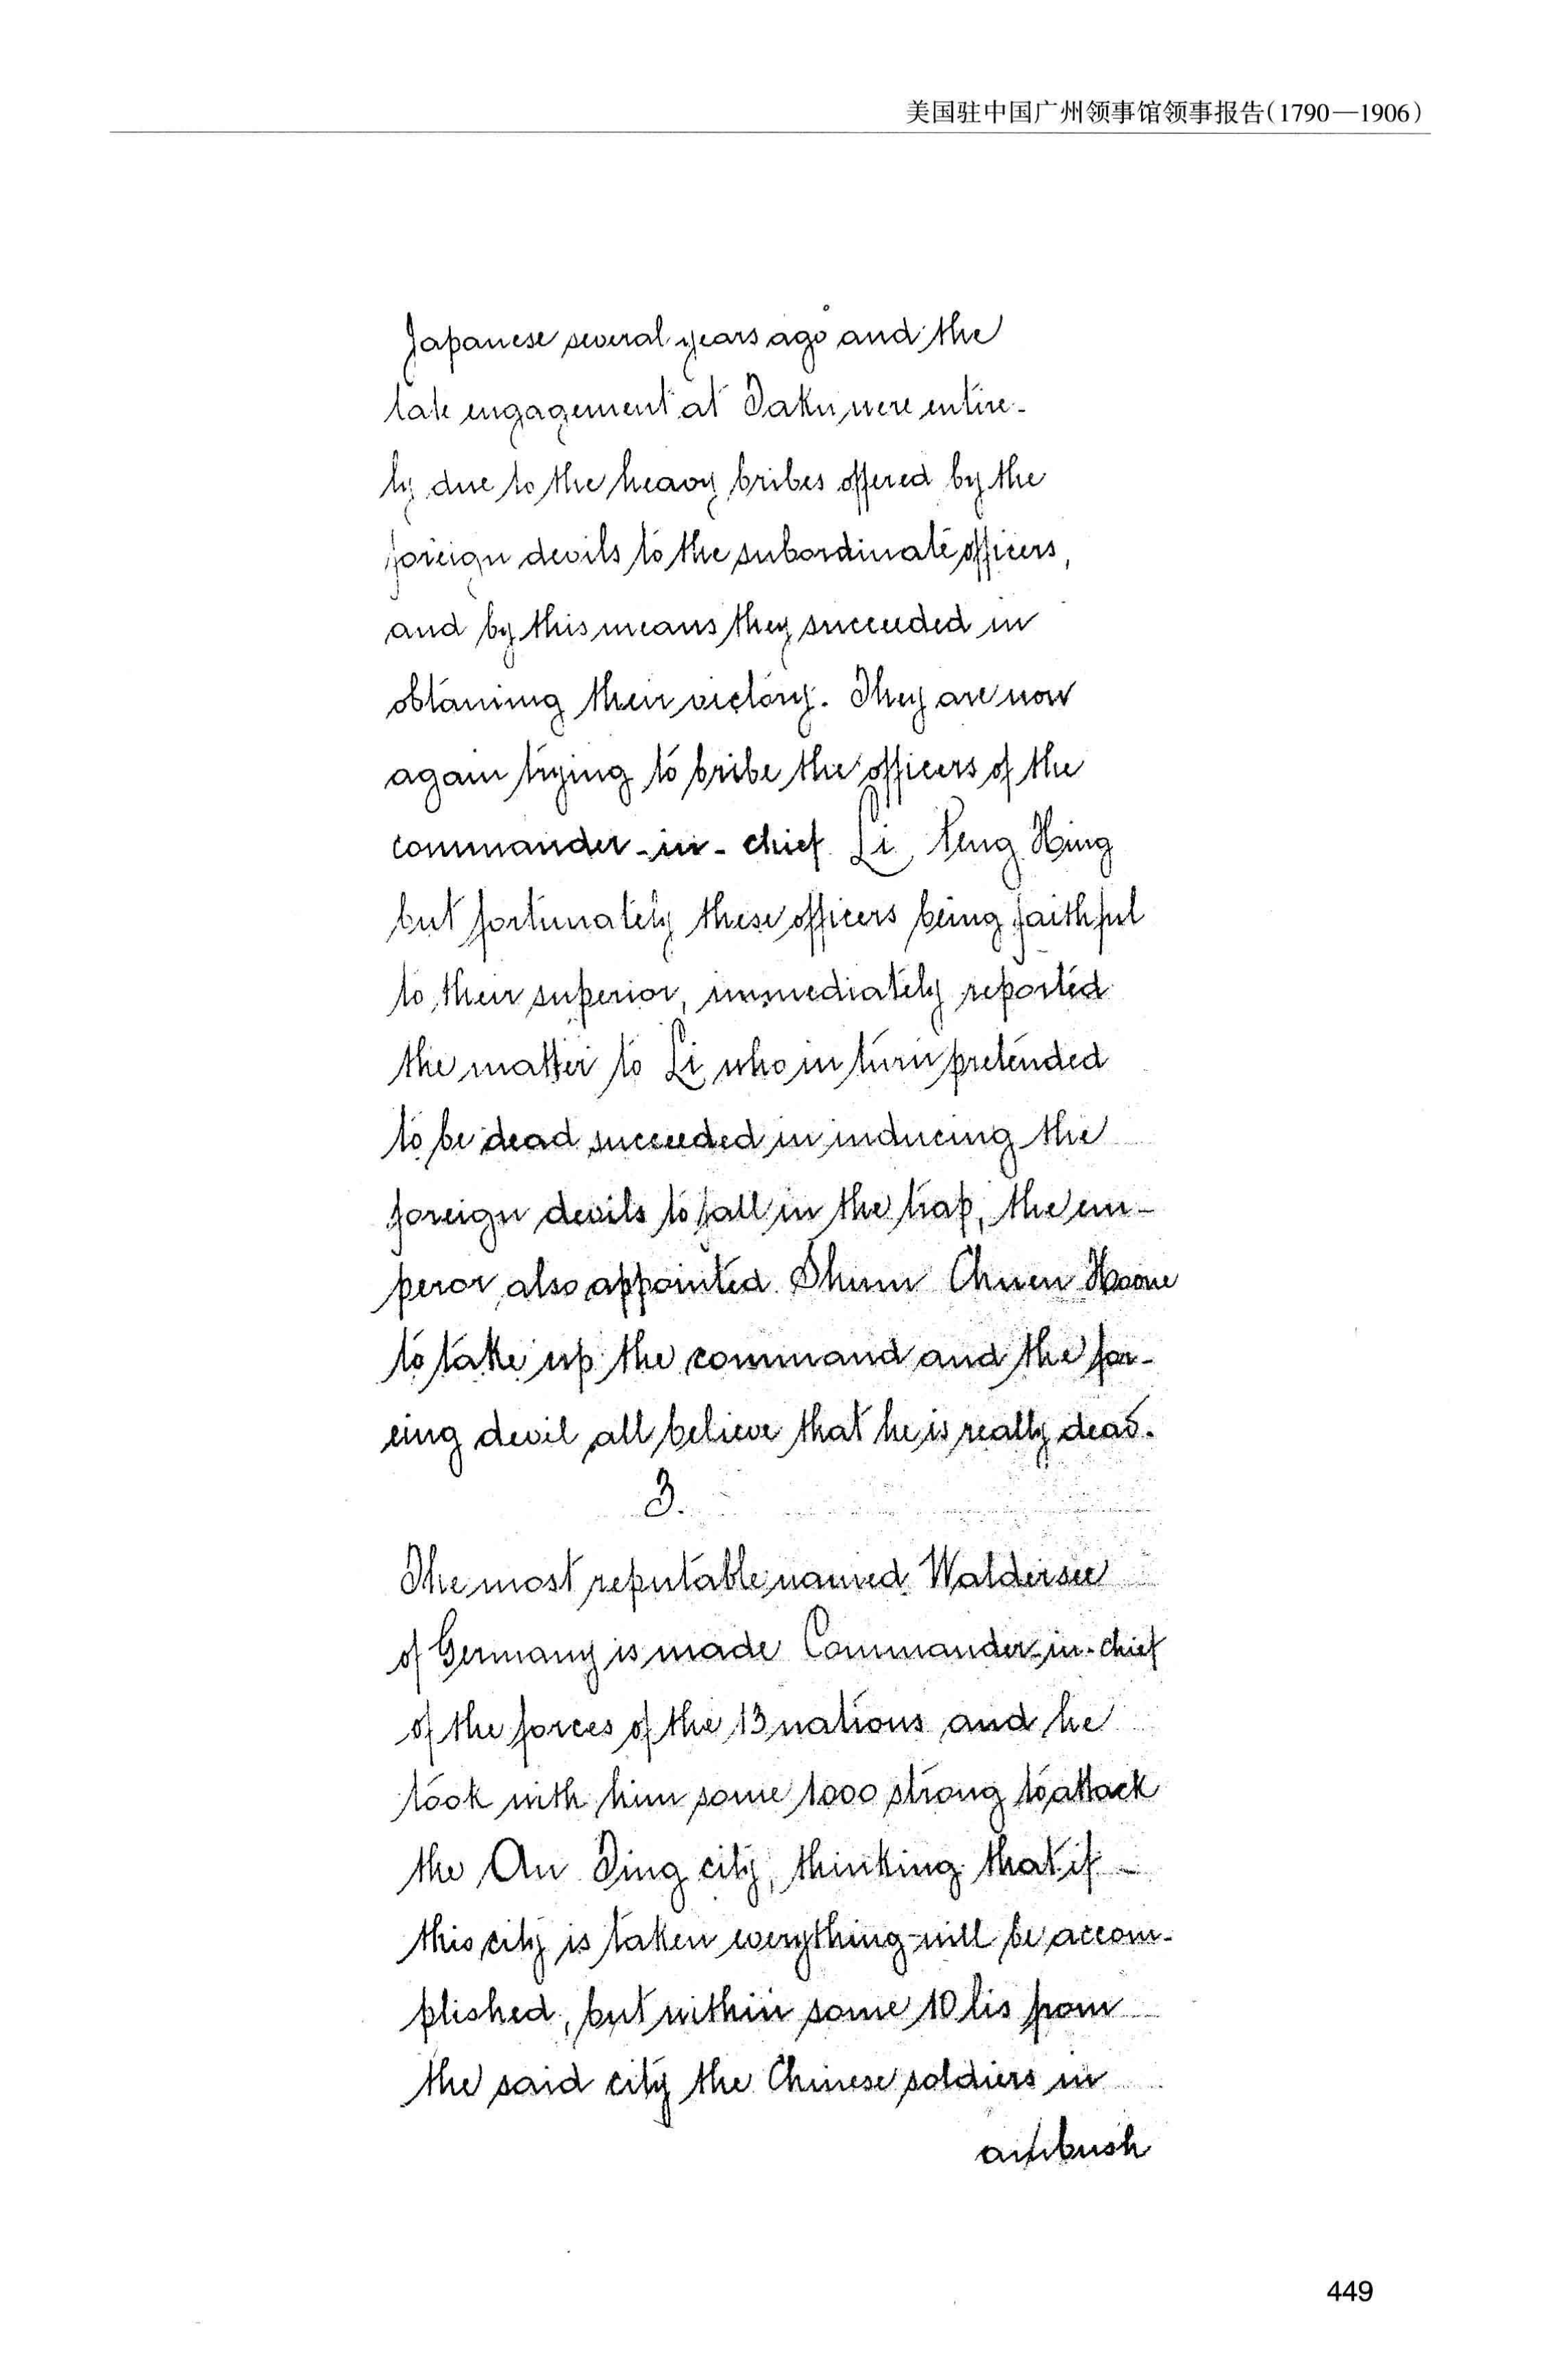 美国驻中国广州领事馆领事报告(1790—1906)
Japanese several years ago and the
late engagement at Taku were entire-
ly due to the heavy bribes offered by the
foreign devils to the subordinate officers,
and by this means they succeeded in
obtaining their victory. They are now
again trying to bribe the officers of the
commander-in-chief Li Peng Hing
but fortunately these officers being faithful
to their superior, immediately reported
the matter to Li who in turn pretended
to be dead succeeded in inducing the
foreign devils to fall in the trap, the em-
peror also appointed Shum Chuen
to take up the command and the for-
eing devil all believe that he is really dead.
3.
The most reputable named Waldersee
of Germany is made Commander-in-chief
of the forces of the 13 nations and he
took with him some 1000 strong to attack
the An Ting city, thinking that if
this city is taken everything will be accom-
plished, but within some 10 lis from
the said city the Chinese soldiers in
ambush
449